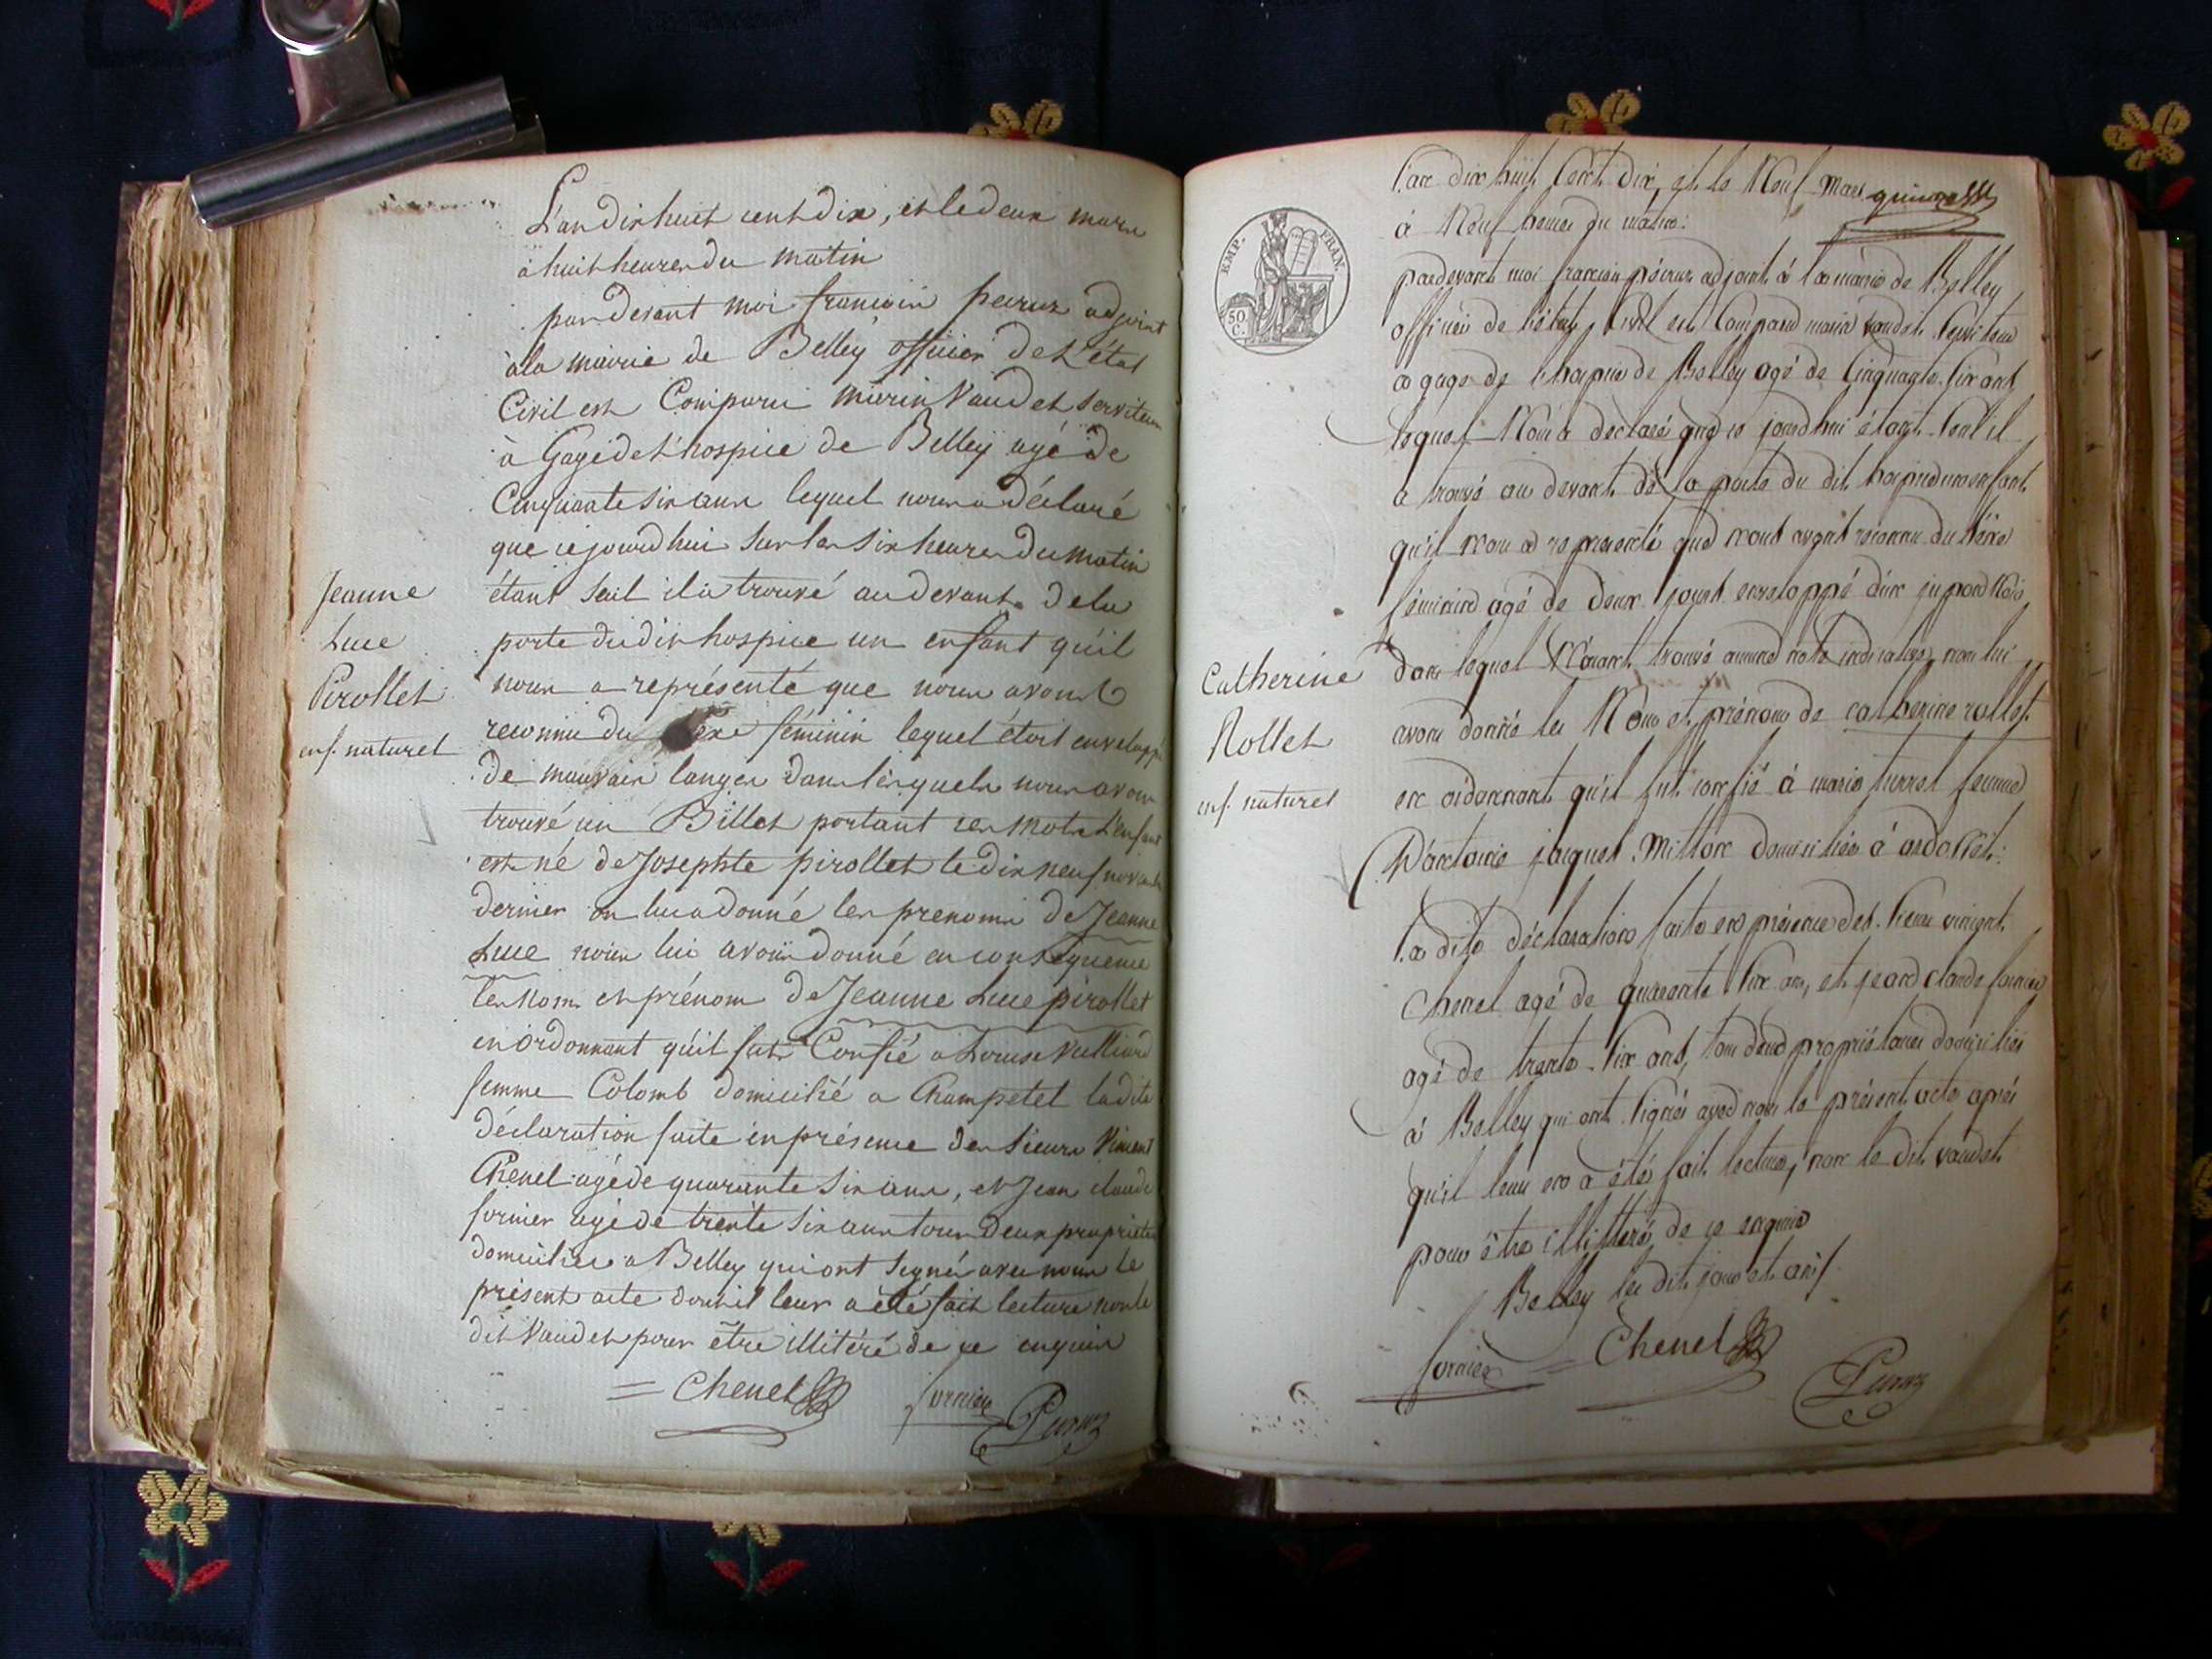 L'an dix huit cent dix, et le deux mars
à huit heures du matin
pardevant moi francois peiruz adjoint
à la mairie de Belley officier de L'état
Civil est Comparu marin Vaudet serviteur
à Gage de L'hospice de Belley agé de
Cinquante six ans lequel nous a déclaré
que cejourd'hui sur les six heures du matin
étant seul il a trouvé au devant de la
porte du dit hospice un enfant qu'il
nous a représenté que nous avons
reconnu du sexe féminin lequel étoit enveloppé
de mauvais langes dans lesquels nous avons
trouvé un Billet portant ces mots L'enfant
est né de Josephte pirollet le dix neuf
dernier on lui a donné les prenoms de Jeanne
Luce nous lui avons donné en consequence
les Nom et prénom de Jeanne Luce pirollet
en ordonnant qu'il fut Confié a Louise Vulliard
femme Colomb domicilié a Champetel la dite
déclaration faite en présence des sieurs Vincent
Chenel agé de quarante six ans, et Jean claude
fornier agé de trente six ans tous deux proprietes
domiciliés a Belley qui ont signés avec nous le
présent acte dont il leur a été fait lecture non le
dit Vaudet pour être illitéré de ce enquis
Chenel
fornier
Peiruz
Jeanne
Luce
Pirollet
enf. naturel
EMP. FRAN.
50
C.
L'an dix huit Cent Dix, et le Neuf mars
à Neuf heures du matin
pardevant moi francois péiruz adjoint à la mairie de Belley
officier de l'état Civil est Comparu marin vaudet serviteur
a gage de l'hospice de Belley agé de Cinquante six ans
lequel Nous a déclaré que ce jourd'hui étant seul il
a trouvé au devant de la porte du dit hospice un enfant
qu'il nous a representé que nous avons reconnu du sexe
féminin agé de deux jours enveloppé d'un jupon
dans lequel N'ayant trouvé aucune note indicative, nous lui
avons donné les Nom et prénom de catherine rollet
en ordonnant qu'il fut confié à marie turrel femme
D'antoine jaquet Mitton domiciliée à andosset
La dite déclaration faite en présence des sieurs vincent
Chenel agé de quarante six ans, et jean claude fornier
agé de trente six ans, tous deux propriétaires domiciliés
à Belley qui ont signés avec nous le présent acte après
qu'il leur en a été fait lecture, non le dit vaudet
pour être illitteré de ce enquis
Belley les dits jour et an
fornier
Chenel
Peiruz
Catherine
Rollet
enf. naturel